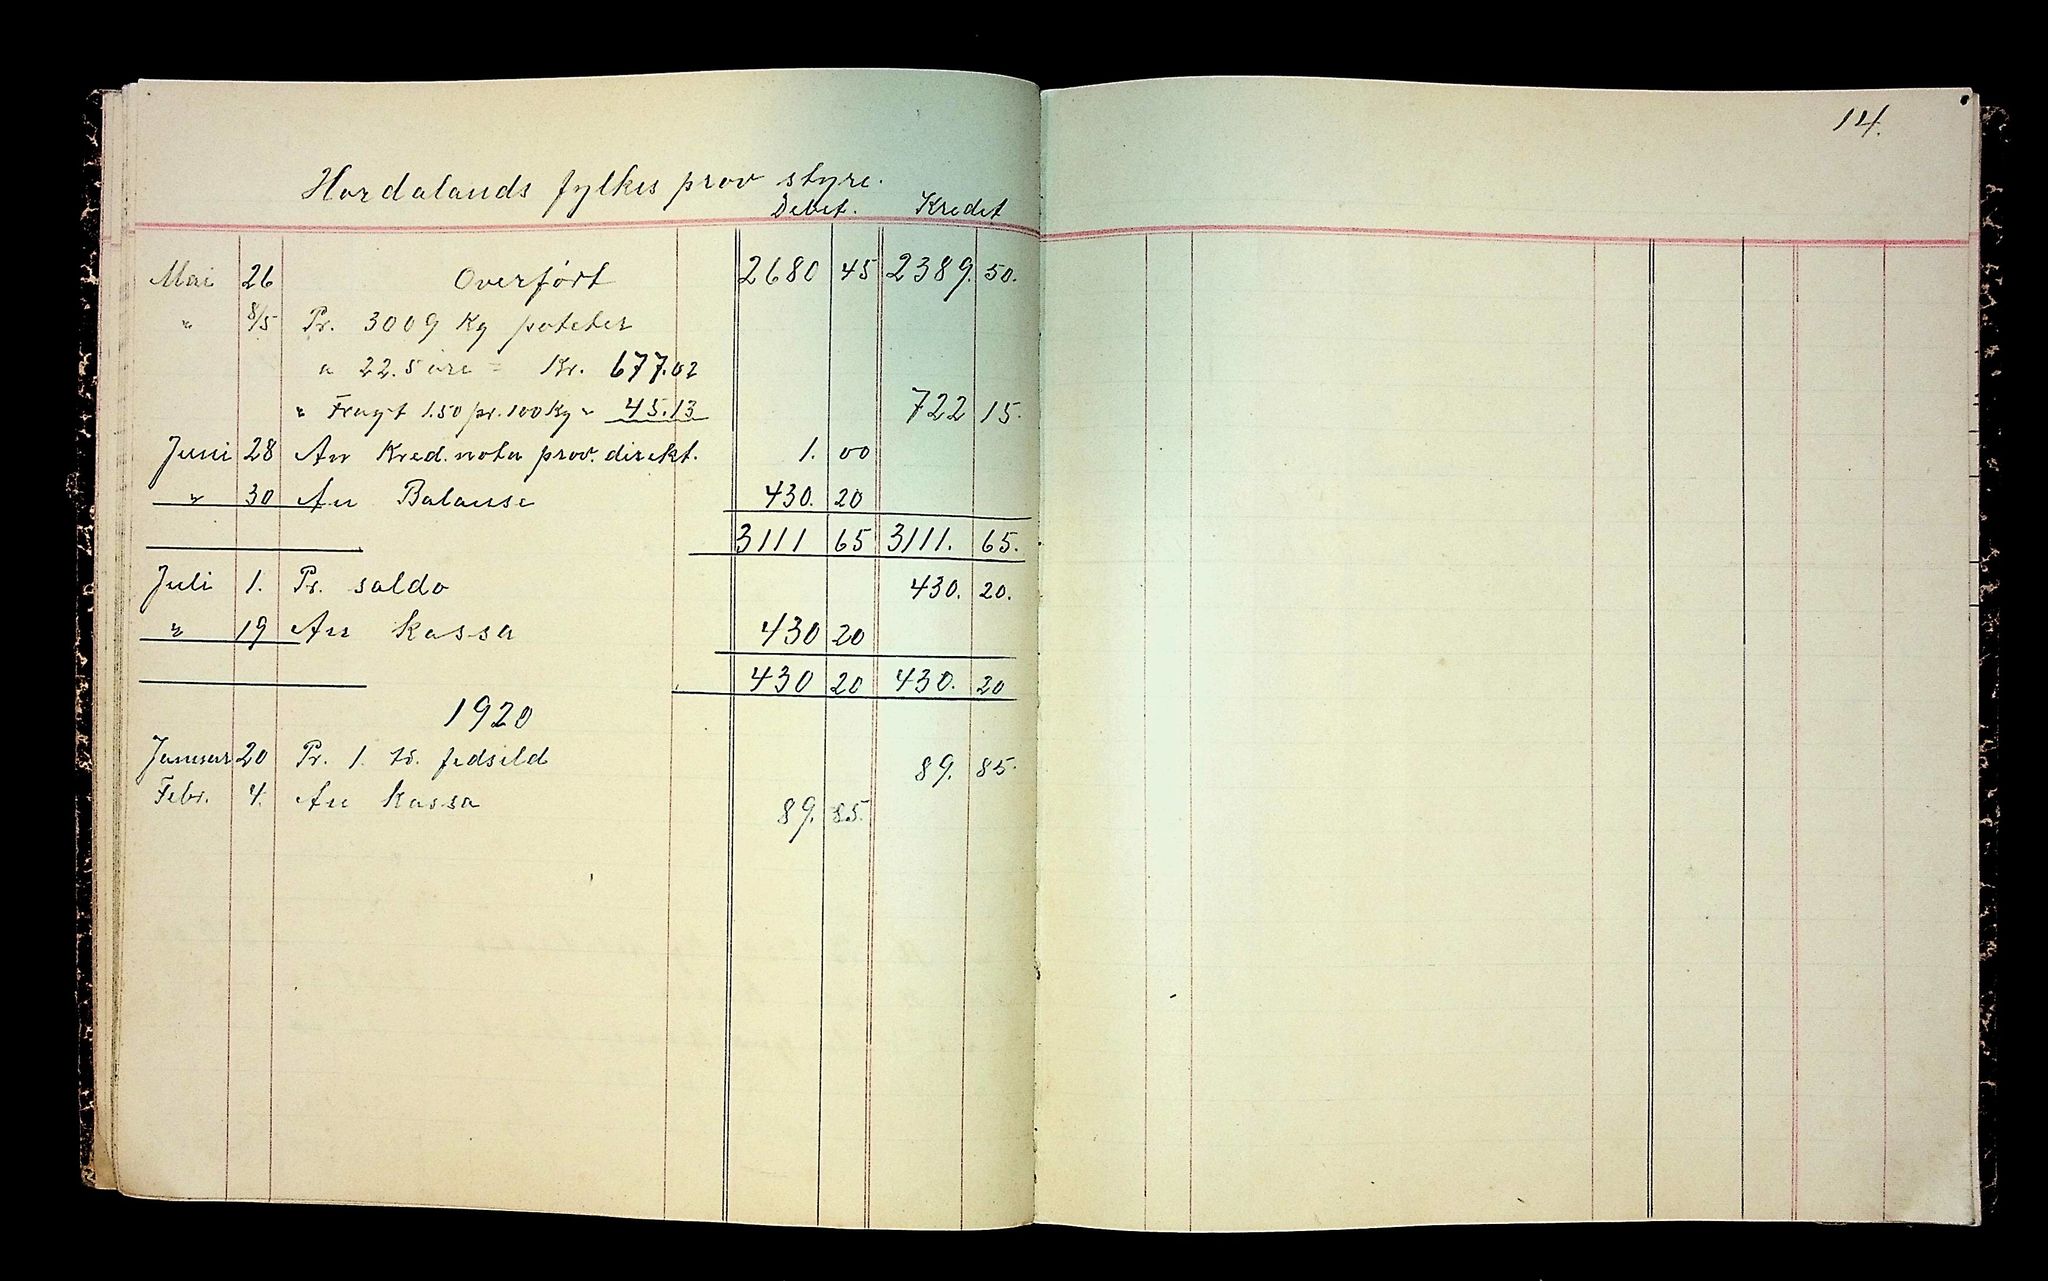 14.
Hordalands fylkes prov styre.
Debet. Kredet
Mai 26 Overført 2680 45 2389. 50.
" 8/5 Pr. 3009 Kg poteter
a 22.5 øre = Kr. 677.02
" Fragt 1.50 pr. 100 Kg " 45.13 722 15.
Juni 28 An Kred. nota prov. direkt. 1. 00
" 30 An Balanse 430. 20
3111 65 3111. 65.
Juli 1. Pr. saldo 430. 20.
" 19 An Kassa 430 20
430 20 430. 20
1920
Januar 20 Pr. 1. td. fedsild 89. 85.
Febr. 4. An Kassa 89. 85.